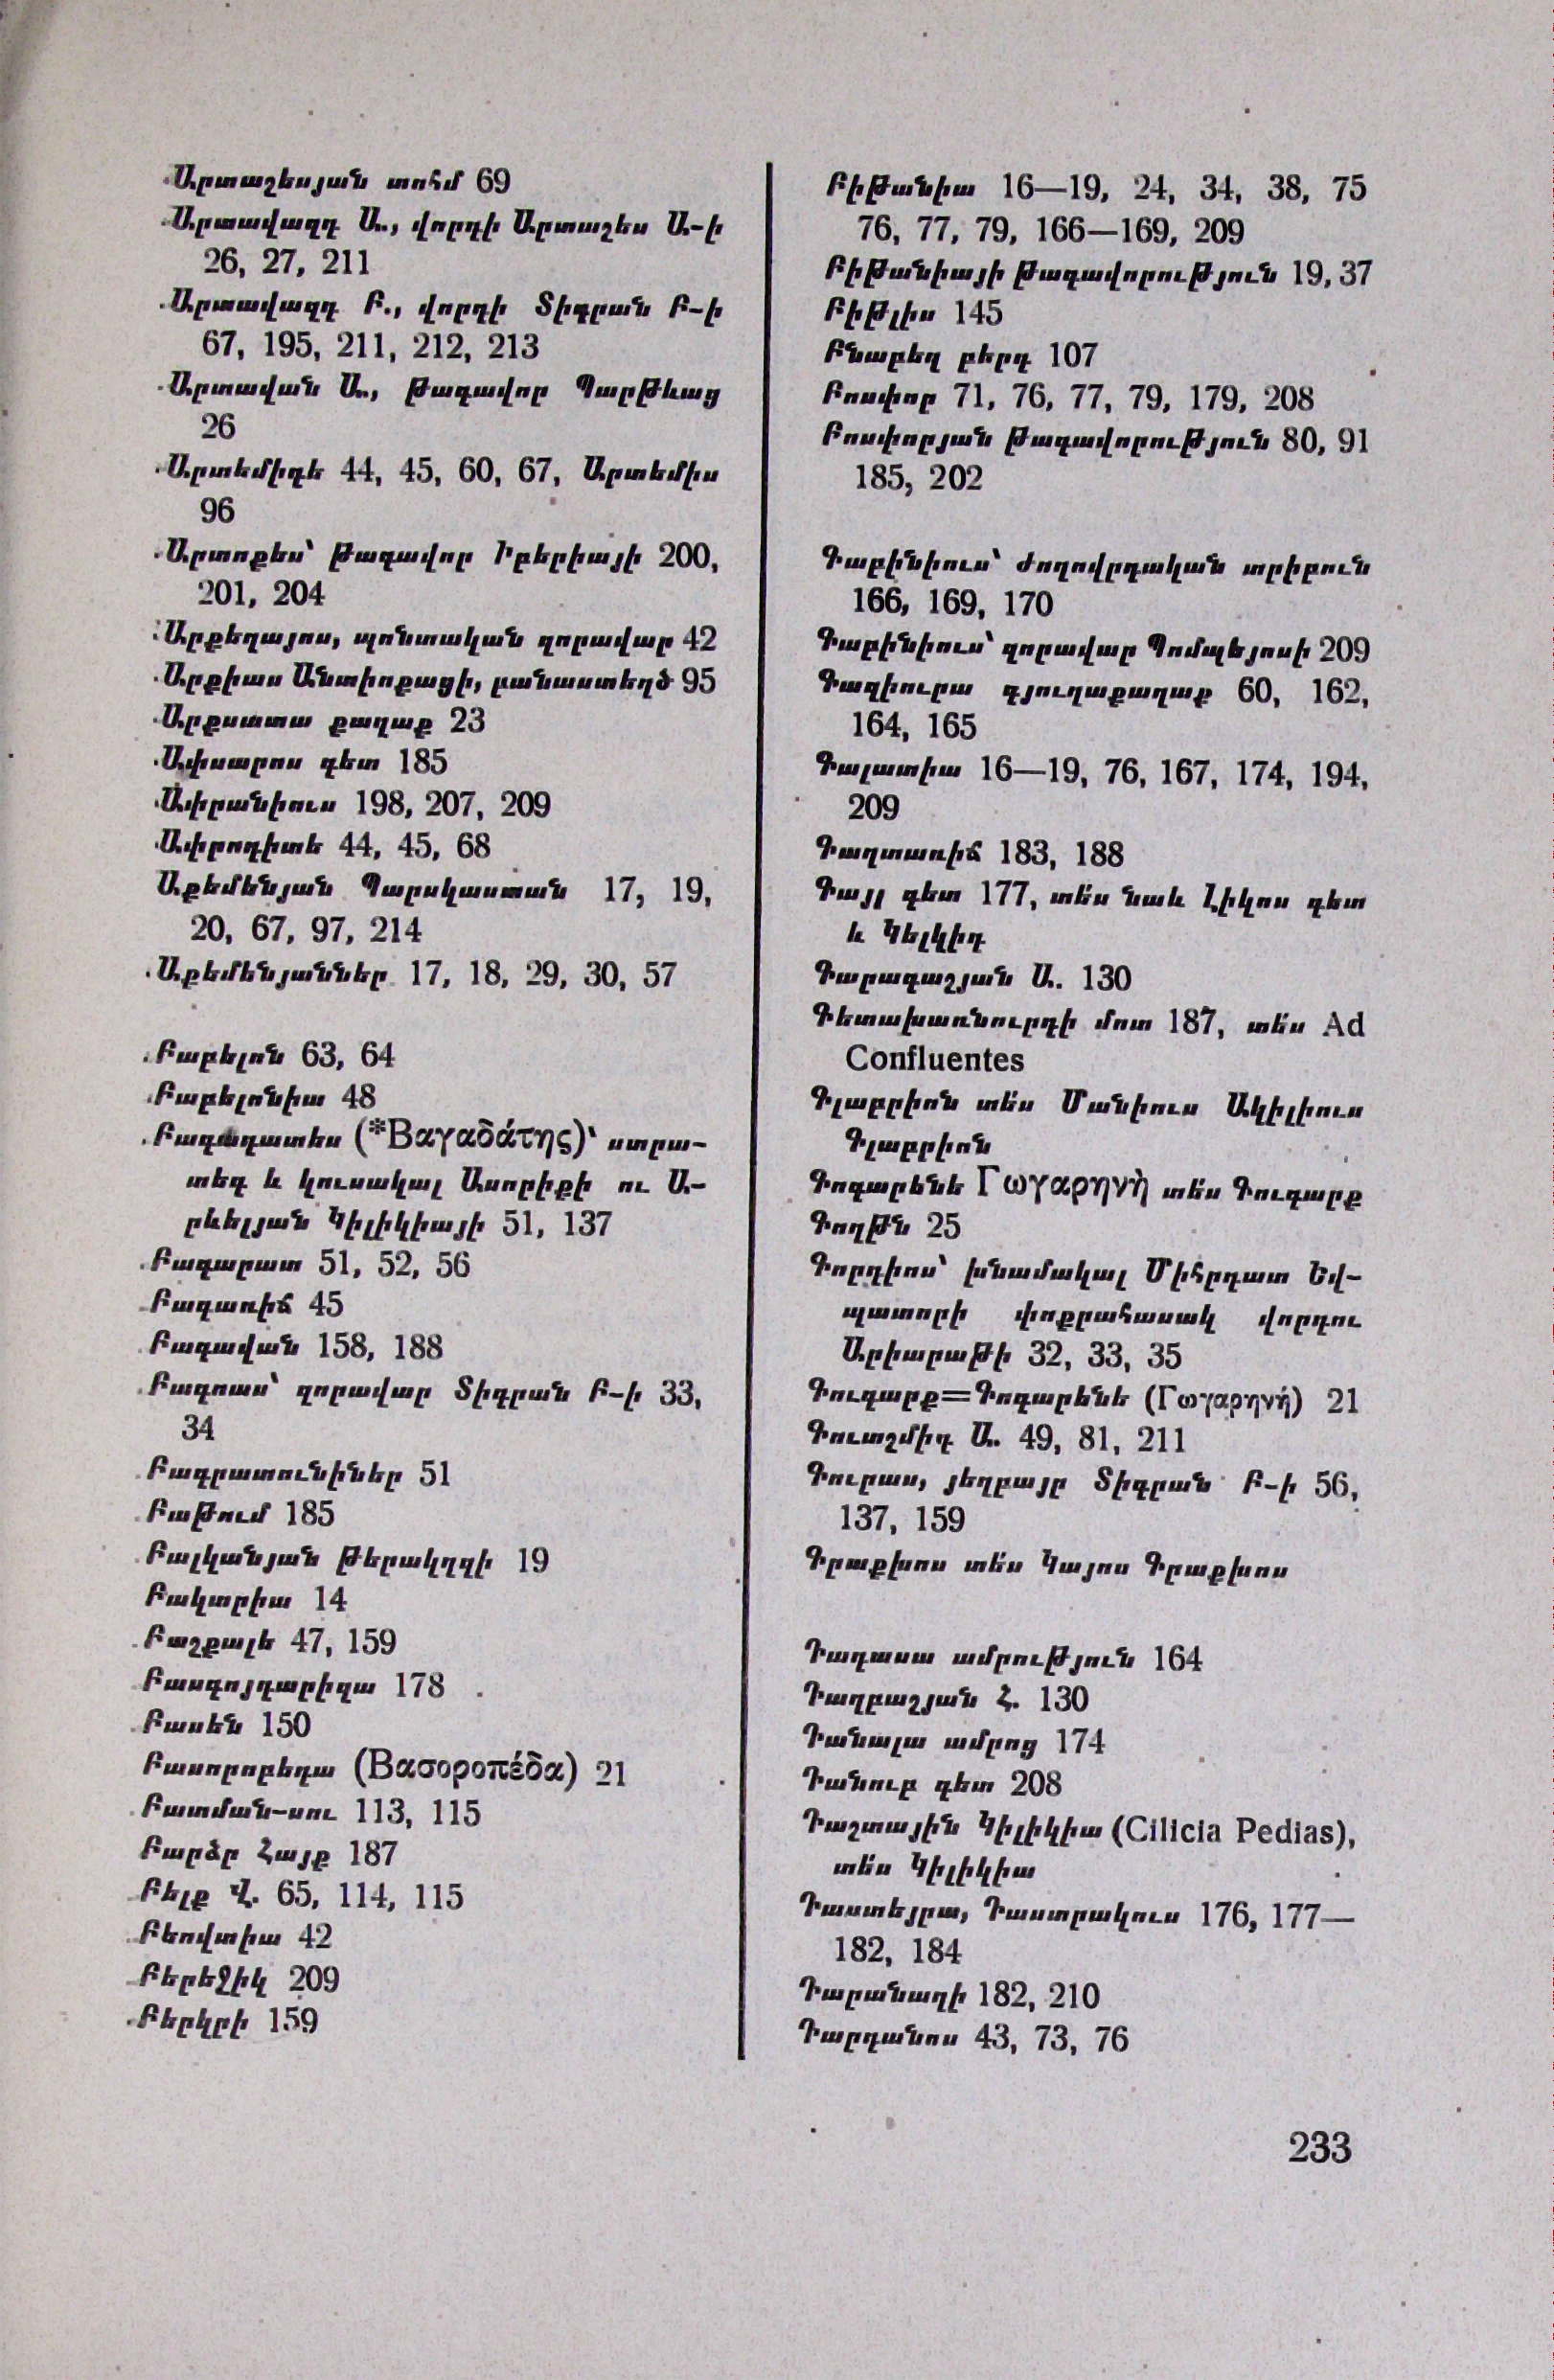 Արտաշեսյան տոհմ 69
Արտավազդ Ա., վորդի Արտաշես Ա-ի
26, 27, 211
Արտավազդ Բ., վորդի Տիգրան Բ-ի
67, 195, 211, 212, 213
Արտավան Ա., թագավոր Պարթևաց
26
Արտեմիդե 44, 45, 60, 67, Արտեմիս
96
Արտոքես՝ թագավոր Իբերիայի 200,
201, 204
Արքեղայոս, պոնտական զորավար 42
Արքիաս Անտիոքացի, բանաստեղծ 95
Արքսատա քաղաք 23
Ափսարոս գետ 185
Ափրանիուս 198, 207, 209
Ափրոդիտե 44, 45, 68
Աքեմենյան Պարսկաստան 17, 19,
20, 67, 97, 214
Աքեմենյաններ 17, 18, 29, 30, 57
Բաբելոն 63, 64
Բաբելոնիա 48
Բագադատես (*Βαγαδάτης)՝ ստրա-
տեգ և կուսակալ Ասորիքի ու Ա-
րևելյան Կիլիկիայի 51, 137
Բագարատ 51, 52, 56
Բագառիճ 45
Բագավան 158, 188
Բագոաս՝ զորավար Տիգրան Բ-ի 33,
34
Բագրատունիներ 51
Բաթում 185
Բալկանյան թերակղզի 19
Բակտրիա 14
Բաշքալե 47, 159
Բասգոյդարիզա 178
Բասեն 150
Բասորոբեդա (Βασοροπέδα) 21
Բատման-սու 113, 115
Բարձր Հայք 187
Բելք Վ. 65, 114, 115
Բեովտիա 42
Բերեջիկ 209
Բերկրի 159
Բիթանիա 16—19, 24, 34, 38, 75
76, 77, 79, 166—169, 209
Բիթանիայի թագավորություն 19, 37
Բիթլիս 145
Բնաբեղ բերդ 107
Բոսփոր 71, 76, 77, 79, 179, 208
Բոսփորյան թագավորություն 80, 91
185, 202
Գաբինիուս՝ ժողովրդական տրիբուն
166, 169, 170
Գաբինիուս՝ զորավար Պոմպեյոսի 209
Գազիուրա գյուղաքաղաք 60, 162,
164, 165
Գալատիա 16—19, 76, 167, 174, 194,
209
Գաղտառիճ 183, 188
Գայլ գետ 177, տե՛ս նաև Լիկոս գետ
և Կելկիդ
Գարագաշյան Ա. 130
Գետախառնուրդի մոտ 187, տե՛ս Ad
Confluentes
Գլաբրիոն տե՛ս Մանիուս Ակիլիուս
Գլաբրիոն
Գոգարենե Γωγαρηνὴ տե՛ս Գուգարք
Գողթն 25
Գորդիոս՝ խնամակալ Միհրդատ Եվ-
պատորի փոքրահասակ վորդու
Արիարաթի 32, 33, 35
Գուգարք=Գոգարենե (Γωγαρηνή) 21
Գուտշմիդ Ա. 49, 81, 211
Գուրաս, յեղբայր Տիգրան Բ-ի 56,
137, 159
Գրաքխոս տե՛ս Կայոս Գրաքխոս
Դադասա ամրություն 164
Դաղբաշյան Հ. 130
Դանալա ամրոց 174
Դանուբ գետ 208
Դաշտային Կիլիկիա (Cilicia Pedias),
տե՛ս Կիլիկիա
Դաստեյրա, Դաստրակուս 176, 177—
182, 184
Դարանաղի 182, 210
Դարդանոս 43, 73, 76
233